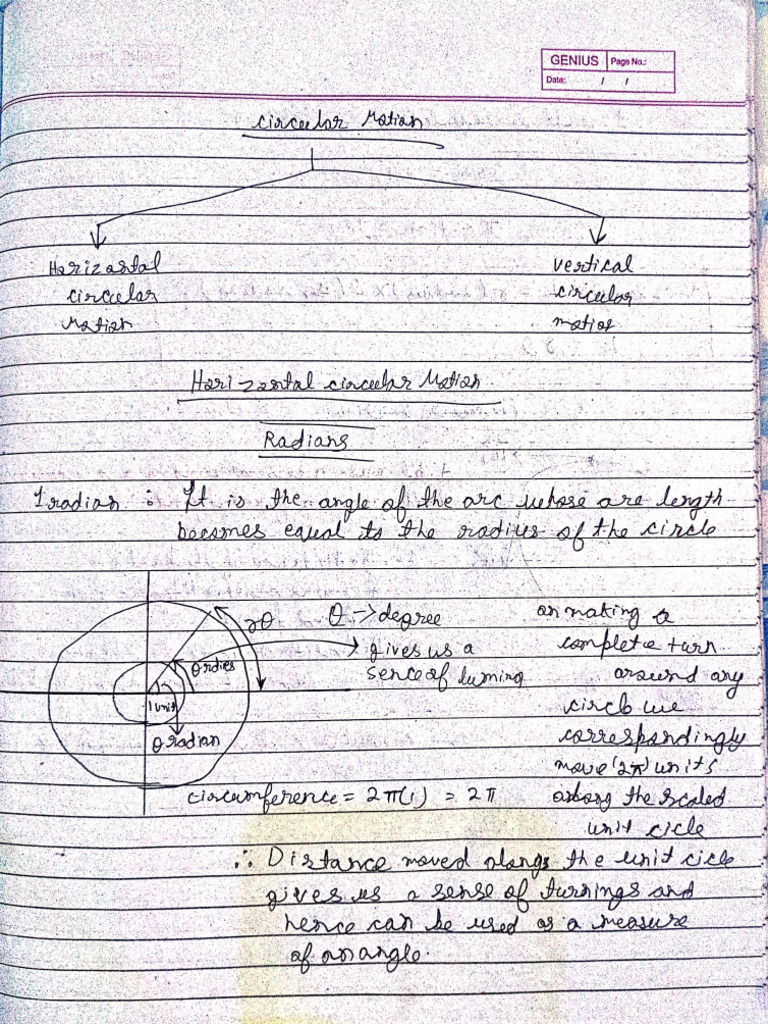 GENIUS Page No.:
Date: / /
Circular Motion
Horizontal
circular
Motion
vertical
circular
motion
Horizontal circular Motion
Radians
1 radian : It is the angle of the arc whose arc length
becomes equal to the radius of the circle
rθ
θ → degree
gives us a
sence of
θ radian
1 unit
on making a
complete turn
around any
circle we
correspondingly
move (2π) units
along the scaled
unit cicle
circumference = 2π(1) = 2π
∴ Distance moved along the unit cicle
gives us a sense of turnings and
hence can be used as a measure
of an angle.